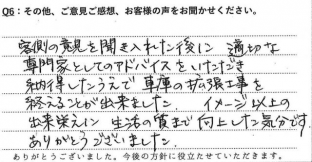 Q6：その他、ご意見ご感想、お客様の声をお聞かせください。
客側の意見を聞き入れた後に 適切な
専門家としてのアドバイスをいただき
納得したうえで 車庫の拡張工事を
終えることが出来ました。 イメージ以上の
出来栄えに 生活の質まで向上した気分です。
ありがとうございました。
ありがとうございました。今後の方針に役立たせていただきます。